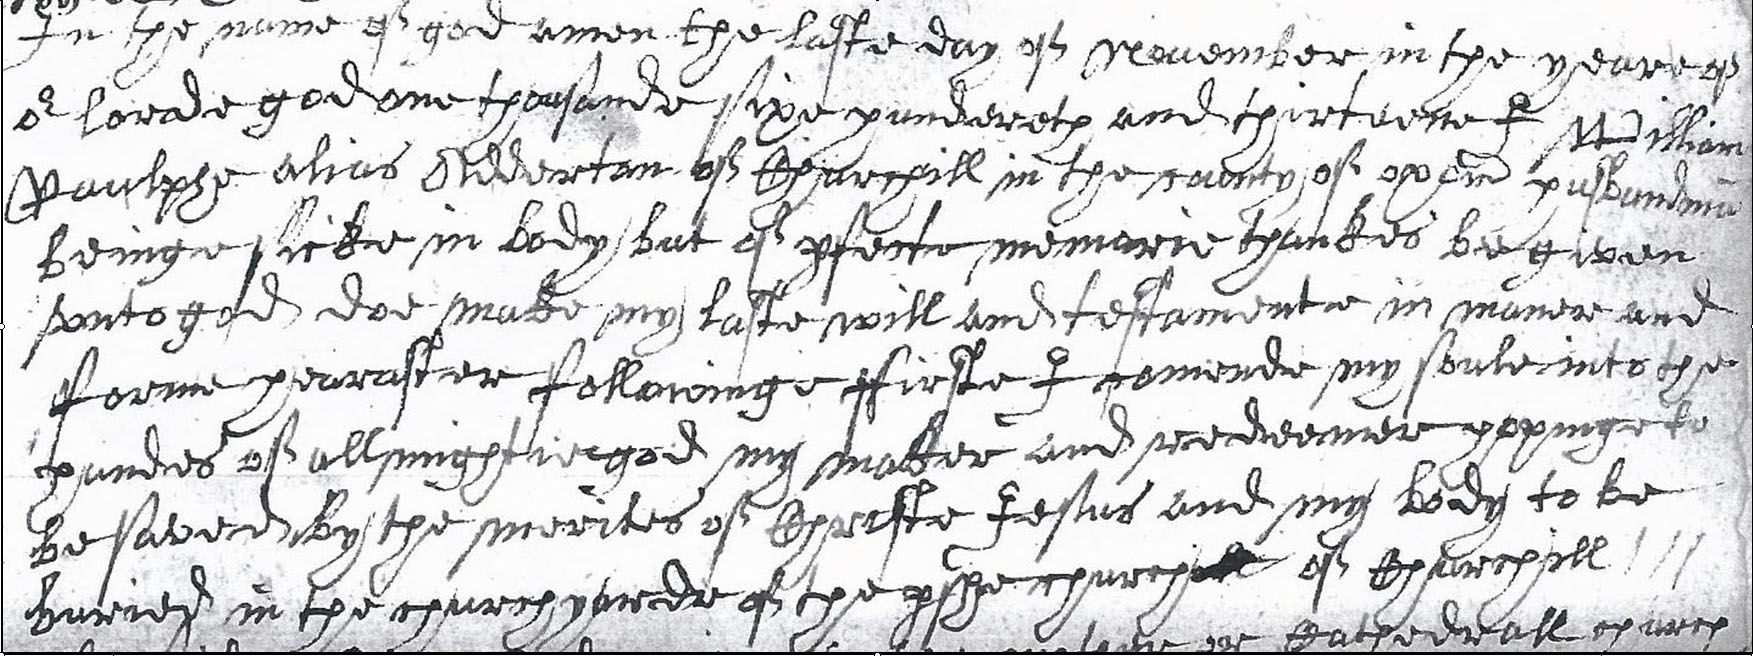 In the name of god amen the laste day of November in the yeare of
or lorde god one thousande sixe hundereth and thirteene I William
Raulphe alias Allderton of Churchill in the county of oxon husbandmā
beinge sicke in body but of pfecte memorie thankes be given
vnto god doe make my laste will and testamente in maner and
forme hearafter followinge ffirste I comende my soule into the
handes of allmightie god my maker and redeemer hopinge to
be saved by the merites of Christe Iesus and my body to be
buried in the churchyarde of the pshe church of Churchill
or Cathedrall church